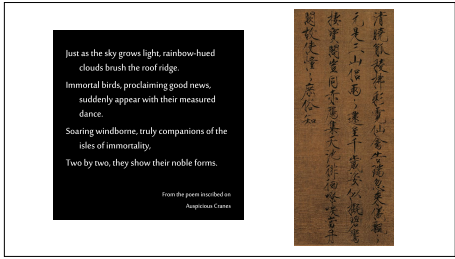 Just as the sky grows light, rainbow-hued
clouds brush the roof ridge.
Immortal birds, proclaiming good news,
suddenly appear with their measured
dance.
Soaring windborne, truly companions of the
isles of immortality,
Two by two, they show their noble forms.
From the poem inscribed on
Auspicious Cranes
清曉觚稜拂彩霓仙禽告瑞忽來儀飄〻
元是三山侶兩〻還呈千歲姿似擬碧鸞
棲寶閣豈同赤雁集天池徘徊嘹唳當丹
闕故使憧〻庶俗知